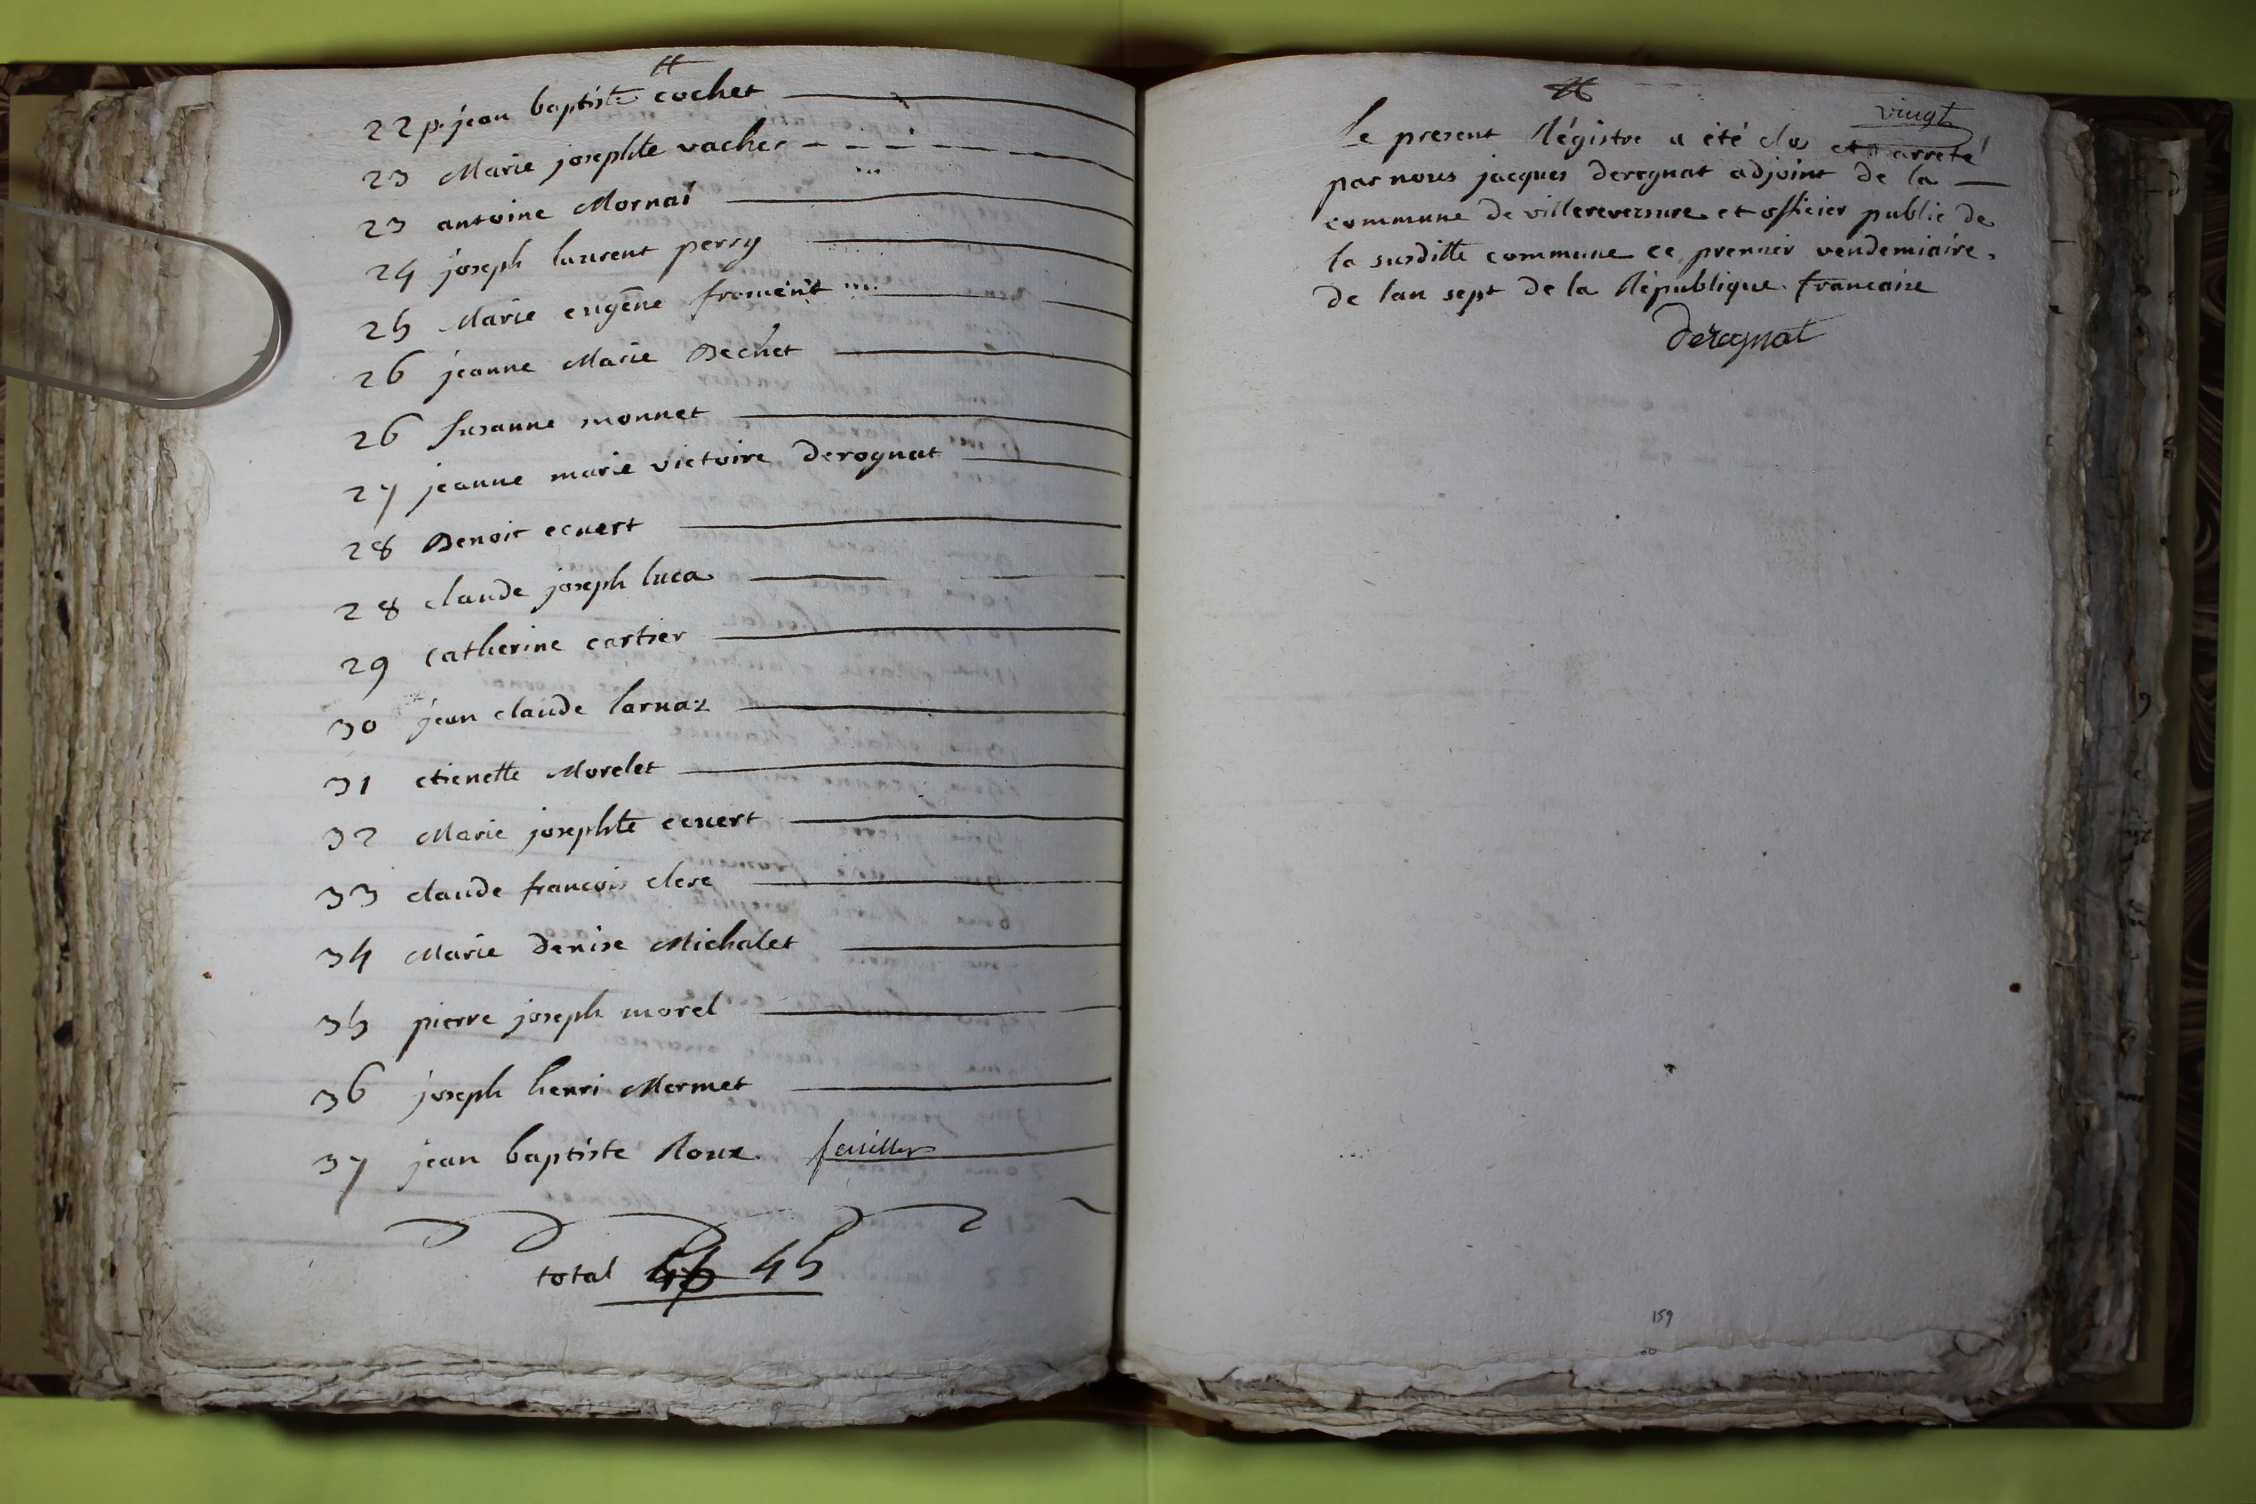 22 p. jean baptiste cochet
23 Marie josephte vacher
23 antoine Mornai
24 joseph laurent perry
25 Marie eugene froment
26 jeanne Marie Bechet
26 susanne monnet
27 jeanne marie victoire derognat
28 Benoit ecuert
28 claude joseph luca
29 Catherine cartier
30 jean claude larnaz
31 etienette Morelet
32 Marie josephte ecuert
33 claude francois clerc
34 Marie denise Michalet
35 pierre joseph morel
36 joseph henri Mermet
37 jean baptiste Roux feuillet
total 46 45
vingt
le present Régistre a été clos et arreté
par nous jacques derognat adjoint de la
commune de villereversure et officier public de
la susditte commune ce premier vendemiaire
de lan sept de la République francaise
derognat
159